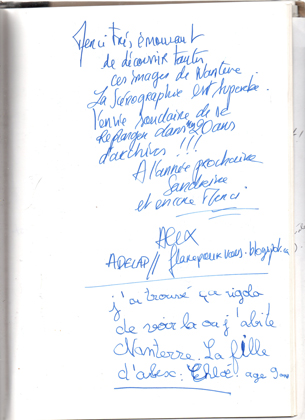 Merci très émouvant
de découvrir toutes
ces images de Nanterre.
La Scénographie est superbe.
l'envie soudaine de se
replonger dans 20 ans
d'archives !!!
A l'année prochaine
Sandrine
et encore Merci
Alex
ADECAP//
j'ai trouvé que rigola
de voir la ou j'abite
Nanterre. La fille
d'alex : Chloé age 9 ans